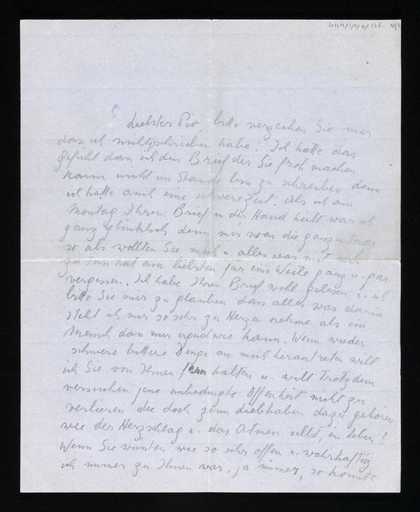 Liebster Pio bitte verzeihen Sie mir
dass ich nicht geschrieben habe. Ich hatte das
Gefühl dass ich den Brief der Sie froh machen
kann nicht im Stande bin zu schreiben denn
ich hatte auch eine schwere Zeit. Als ich am
Montag Ihren Brief in der Hand hielt war ich
ganz glücklich, denn mir war die ganze
so als wollten Sie mich u. alles was mit
zu tun hat am liebsten für eine Weile ganz u. gar
vergessen. Ich habe Ihren Brief wohl gelesen u. ich
bitte Sie mir zu glauben dass alles was darin
steht ich mir so sehr zu Herzen nehme als ein
Mensch dass nur irgendwie kann. Wenn wieder
schwere bittere Dinge an mich herantreten will
ich Sie von Ihnen fern halten u. will Trotzdem
versuchen jene unbedingte Offenheit nicht zu
verlieren die doch zum liebhaben dazu gehören
wie der Herzschlag u. das Atmen selbst, im Leben!
Wenn Sie wüssten wie so sehr offen u. wahrhaftig
ich immer zu Ihnen war, ja immer, so könnte